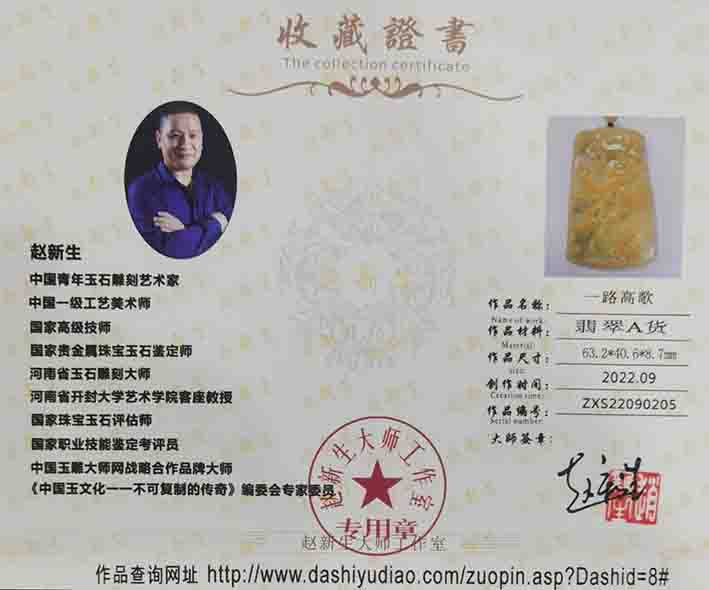 收藏證書
The collection certificate
赵新生
中国青年玉石雕刻艺术家
中国一级工艺美术师
国家高级技师
国家贵金属珠宝玉石鉴定师
河南省玉石雕刻大师
河南省开封大学艺术学院客座教授
国家珠宝玉石评估师
国家职业技能鉴定考评员
中国玉雕大师网战略合作品牌大师
《中国玉文化一一不可复制的传奇》编委会专家委员
作品名称： 一路高歌
Name of work:
作品材料： 翡翠A货
Material:
作品尺寸： 63.2*40.6*8.7mm
size:
创作时间： 2022.09
Creation time:
作品编号： ZXS22090205
Serial number:
大师签章：
赵新生大师工作室
专用章
赵新生大师工作室
作品查询网址 http://www.dashiyudiao.com/zuopin.asp?Dashid=8#